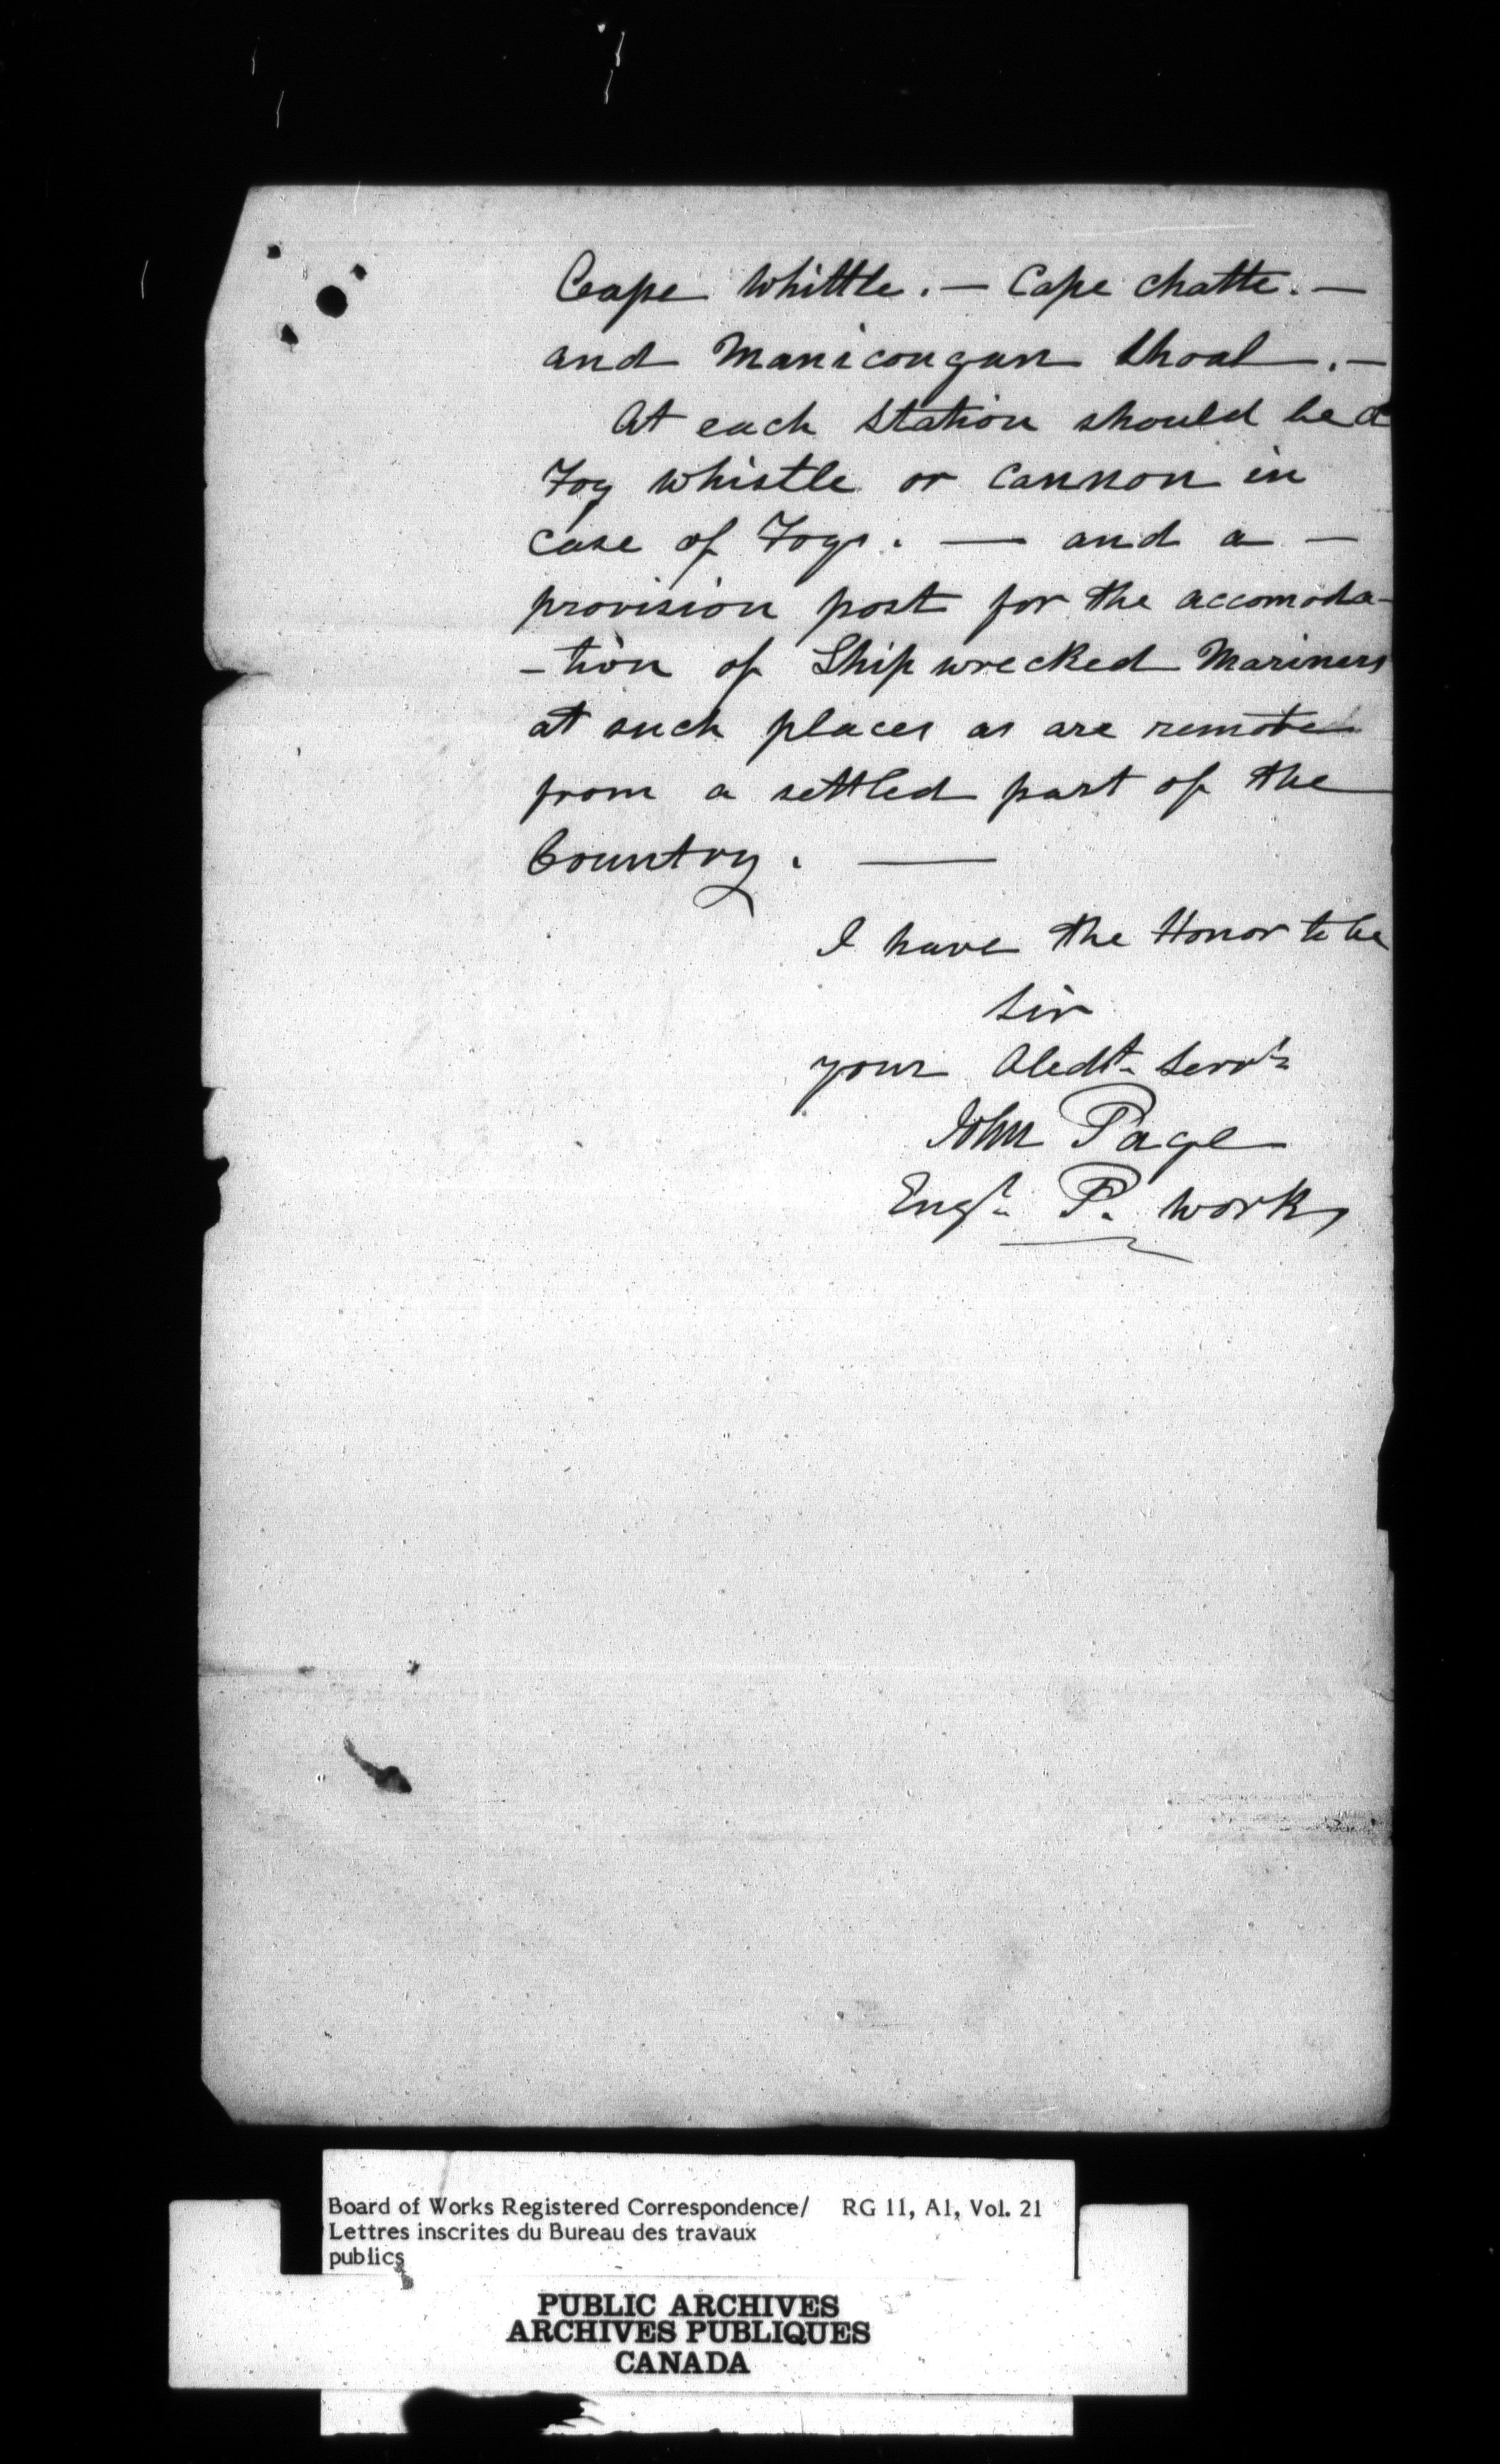 Cape Whittle. — Cape Chatte. —
and Manicougan Shoal. —
At each Station should be a
Fog whistle or Cannon in
case of Fogs. — and a —
provision post for the accomoda-
-tion of Shipwrecked Mariners
at such places as are remote
from a settled part of the
Country. —
I have the Honor to be
Sir
your Obedt. Servt.
John Page
Engr. P. Works
Board of Works Registered Correspondence/ RG 11, A1, Vol. 21
Lettres inscrites du Bureau des travaux
publics
PUBLIC ARCHIVES
ARCHIVES PUBLIQUES
CANADA